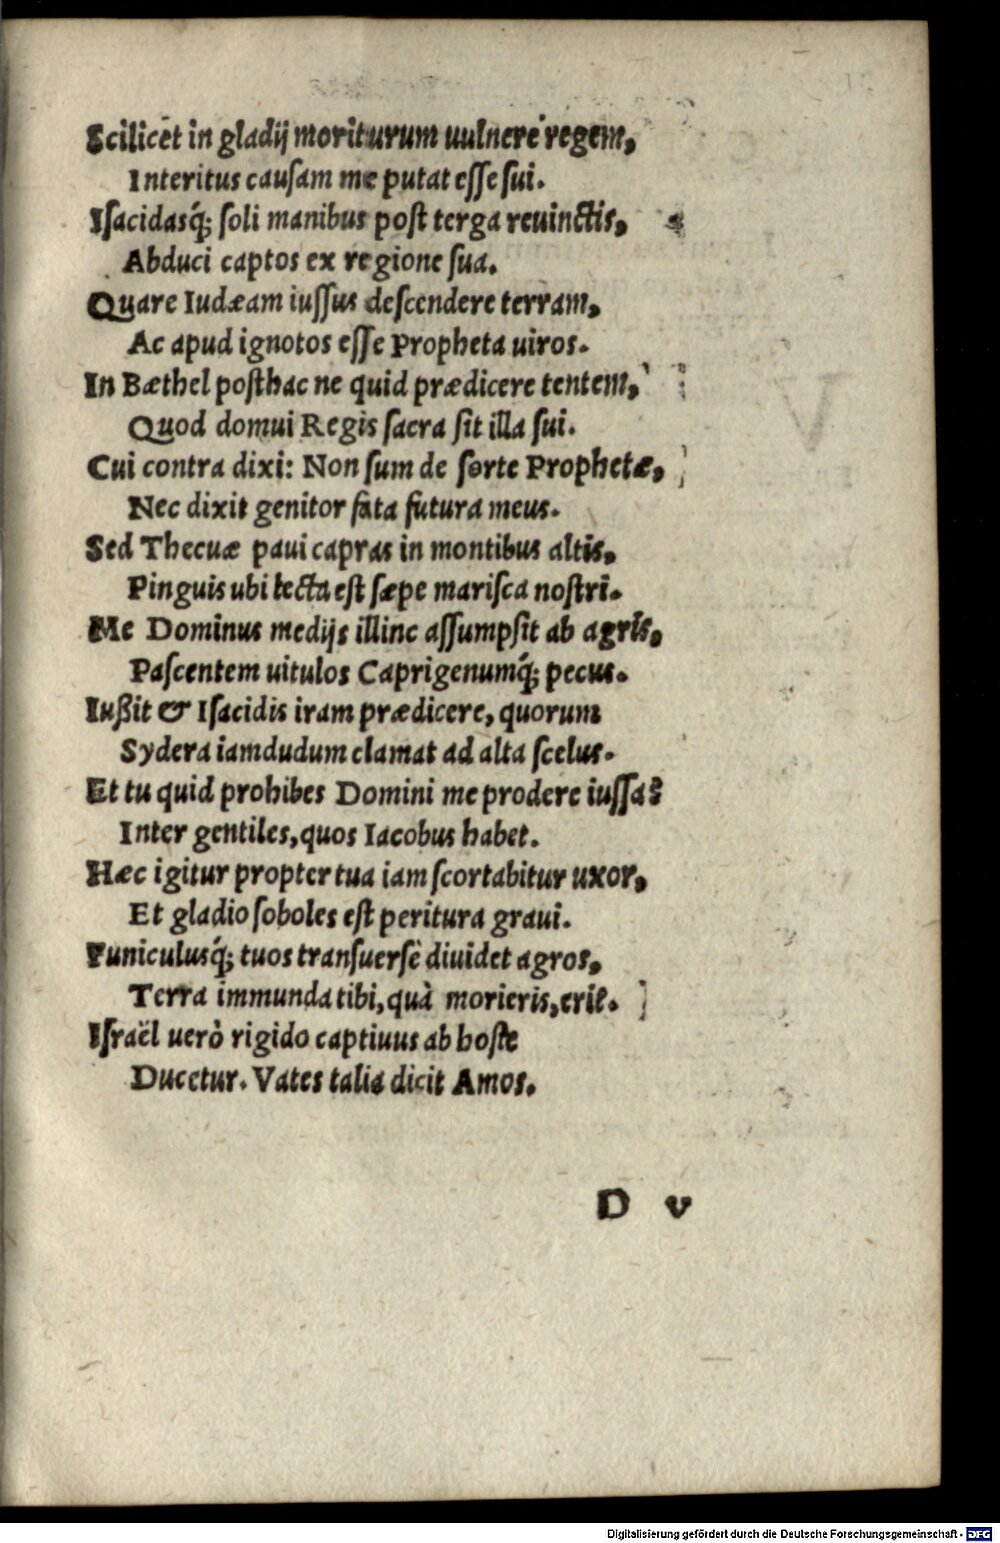 Scilicet in gladij moriturum uulnere regem,
Interitus causam me putat esse sui.
Isacidasq́; soli manibus post terga reuinctis,
Abduci captos ex regione sua.
Quare Iudæam iussus descendere terram,
Ac apud ignotos esse Propheta uiros.
In Bæthel posthac ne quid prædicere tentem,
Quod domui Regis sacra sit illa sui.
Cui contra dixi: Non sum de sorte Prophetæ,
Nec dixit genitor fata futura meus.
Sed Thecuæ paui capras in montibus altis,
Pinguis ubi lecta est sæpe marisca nostri.
Me Dominus medijs illinc assumpsit ab agris,
Pascentem uitulos Caprigenumq́; pecus.
Iußit & Isacidis iram prædicere, quorum
Sydera iamdudum clamat ad alta scelus.
Et tu quid prohibes Domini me prodere iussa?
Inter gentiles, quos Iacobus habet.
Hæc igitur propter tua iam scortabitur uxor,
Et gladio soboles est peritura graui.
Funiculusq́; tuos transuersè diuidet agros,
Terra immunda tibi, quà morieris, erit.
Israël uerò rigido captiuus ab hoste
Ducetur. Vates talia dicit Amos.
D v
Digitalisierung gefördert durch die Deutsche Forschungsgemeinschaft - DFG